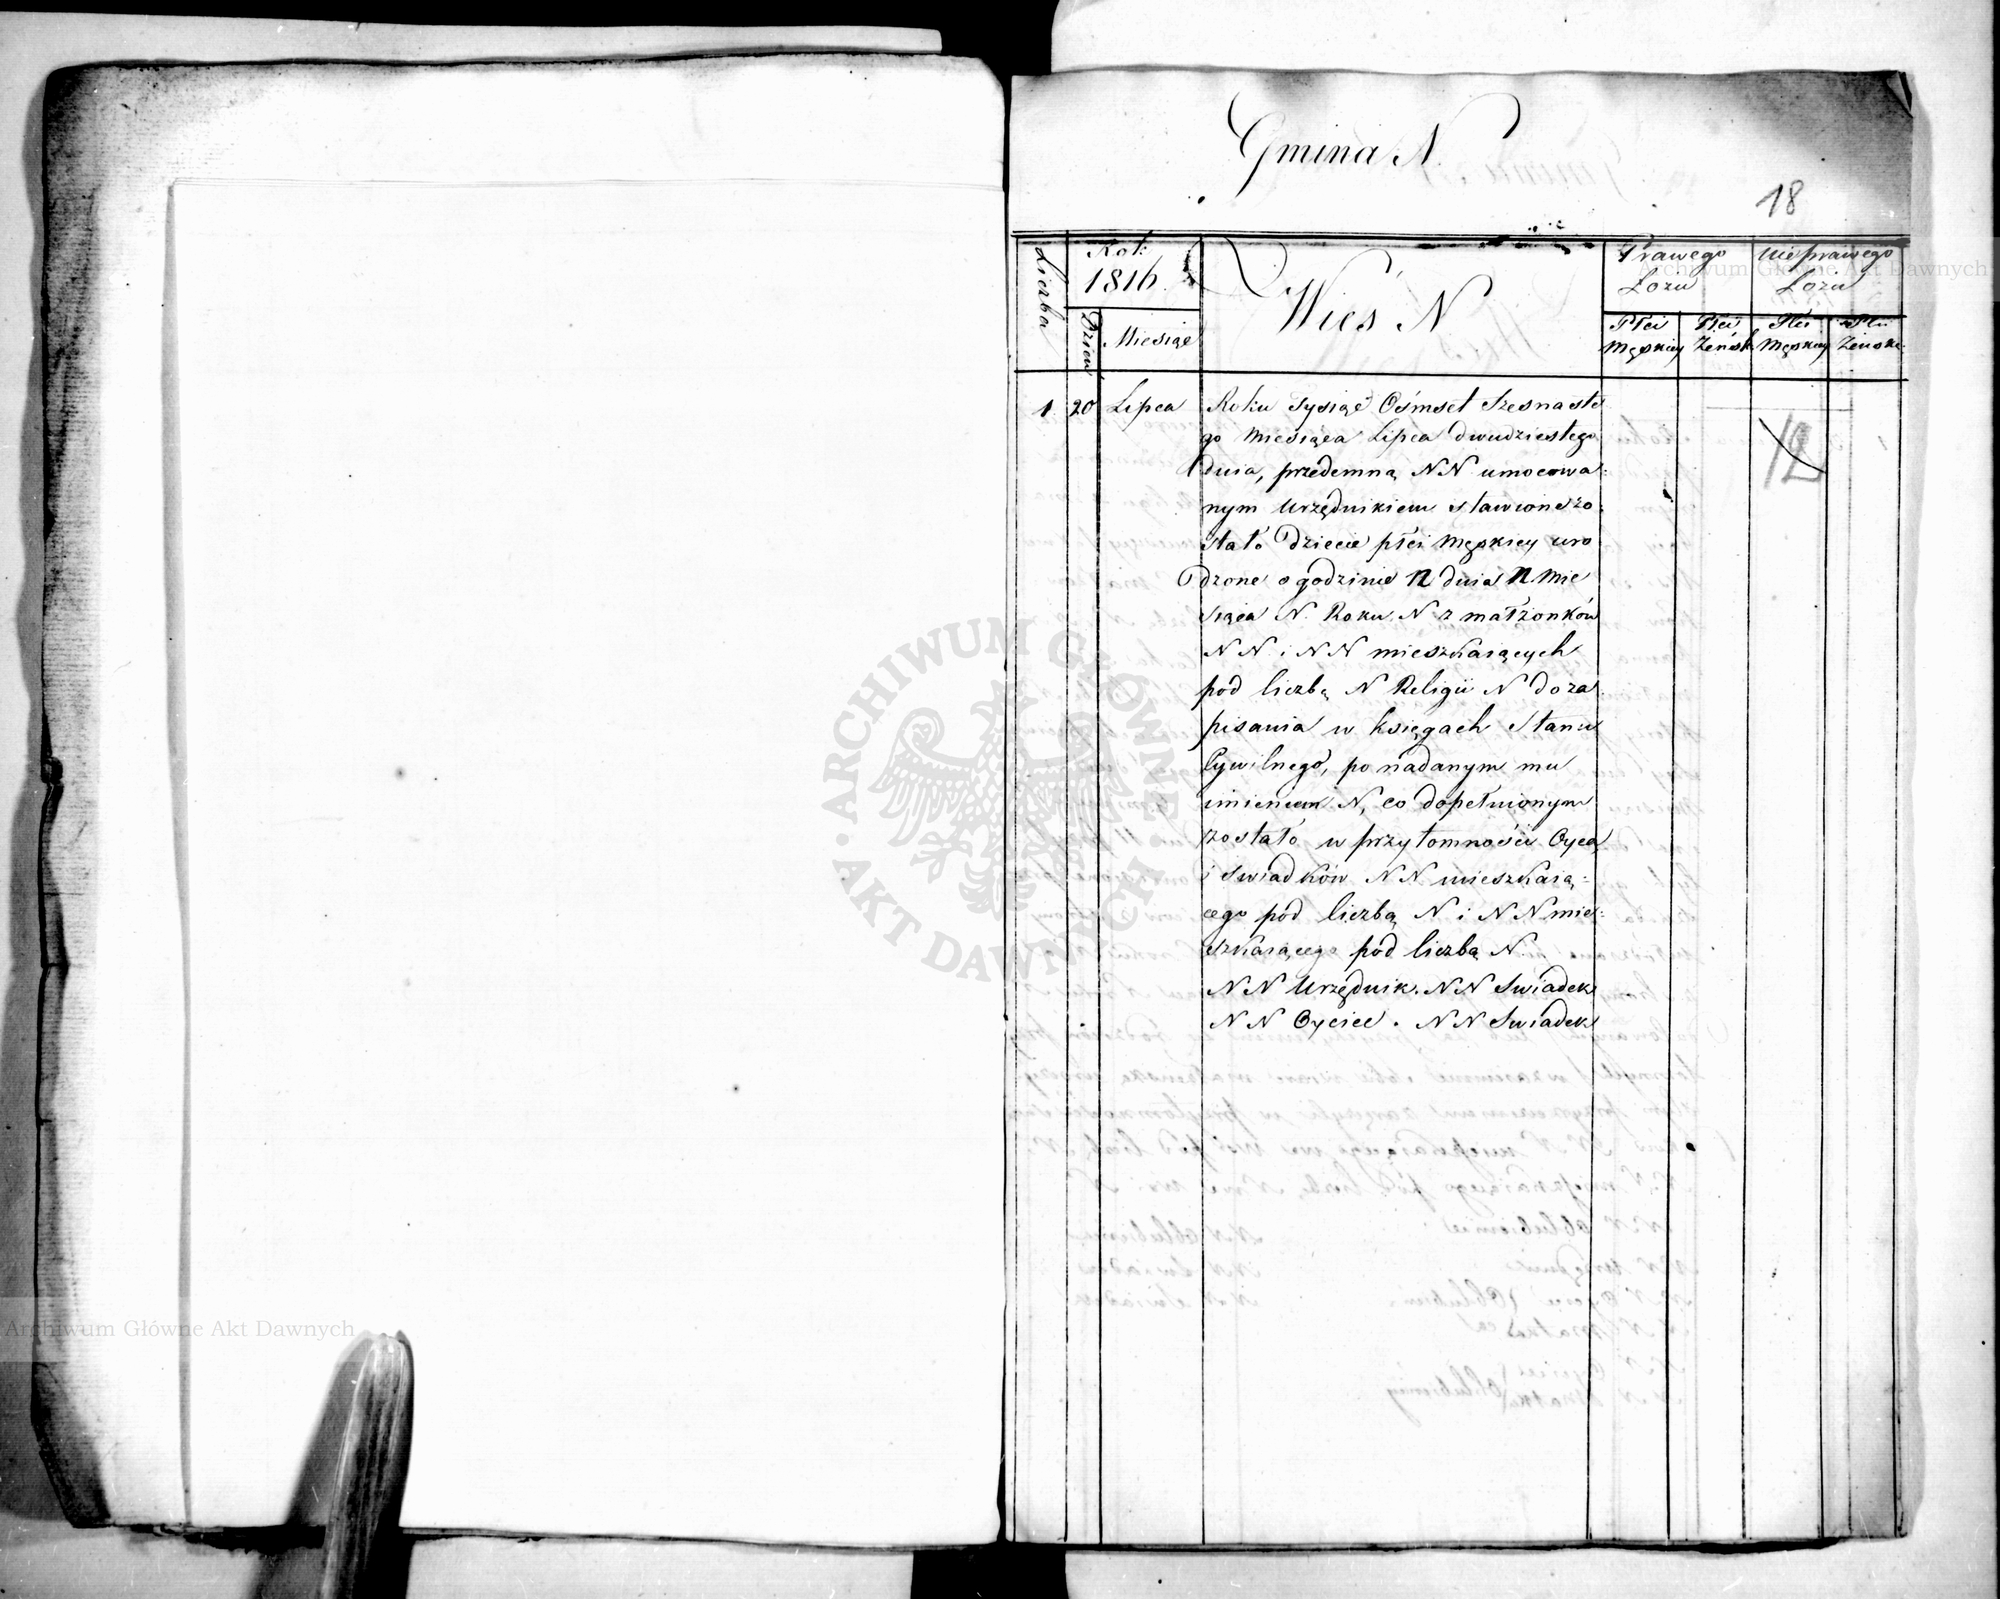 Gmina N.
18
Liczba
Rok
1816.
Dzień
Miesiąc
Wieś N
Prawego
Łoża
Nieprawego
Łoża
Płci
Męskiey
Płci
Żeńsk
Płci
Męskiey
Płci
Żeńskie
1. 20 Lipca
Roku Tysiąc Ośmset Szesnaste
go Miesiąca Lipca dwudziestego
dnia, przedemną NN umocowa:
nym Urzędnikiem stawione zo:
stało Dziecie płci Męskiey uro
dzone o godzinie N dnia N Mie
siąca N. Roku N z małżonków
NN i NN mieszkaiących
pod liczbą N Religii N do za:
pisania w księgach Stanu
Cywilnego, po nadanym mu
imieniem N, co dopełnionym
zostało w przytomności Oyca
i Swiadków NN mieszkaią:
cego pod liczbą N i NN mie:
szkaiącego pod liczbą N.
NN Urzędnik. NN Swiadek
NN Oyciec. NN Swiadek
12
ARCHIWUM GŁÓWNE AKT DAWNYCH
Archiwum Główne Akt Dawnych
Archiwum Główne Akt Dawnych